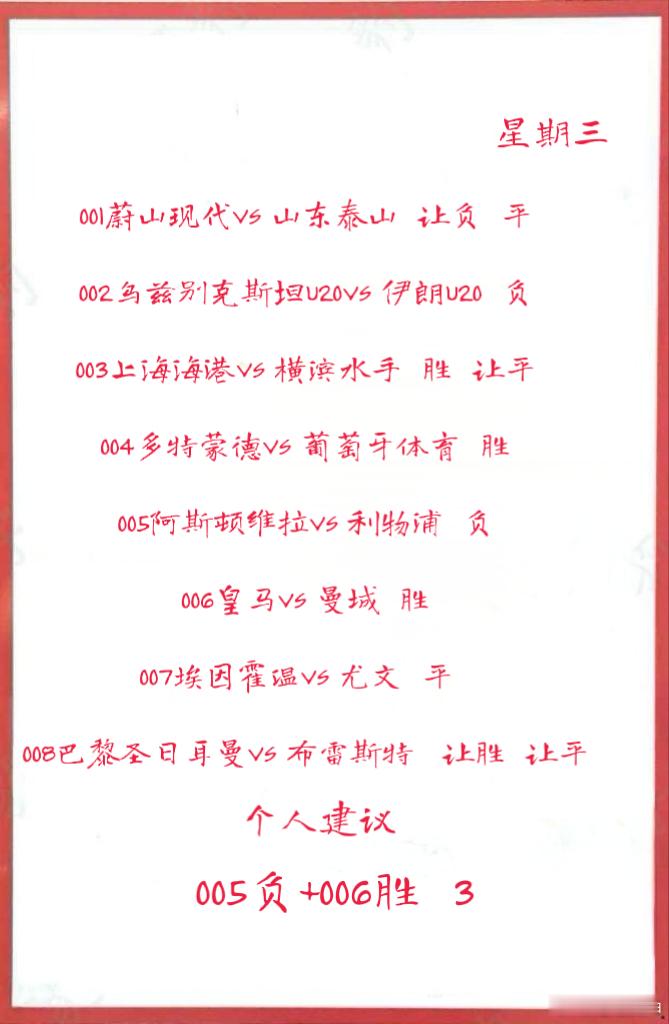 星期三
001蔚山现代vs 山东泰山 让负 平
002乌兹别克斯坦U20vs 伊朗U20 负
003上海海港vs 横滨水手 胜 让平
004多特蒙德vs 葡萄牙体育 胜
005阿斯顿维拉vs 利物浦 负
006皇马vs 曼城 胜
007埃因霍温vs 尤文 平
008巴黎圣日耳曼vs 布雷斯特 让胜 让平
个人建议
005负+006胜 3